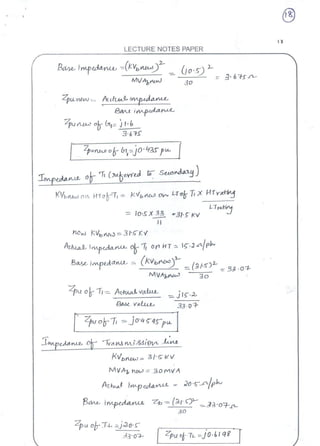 18
18
LECTURE NOTES PAPER
Base Impedance = (KVb new)² / MVAb new = (10.5)² / 30 = 3.675 Ω
Zpu new = Actual impedance / Base impedance
Zpu new of G1 = j1.6 / 3.675
Zpu new of G1 = j0.435 pu
Impedance of T1 (referred to Secondary)
KVb new on HT of T1 = KVb new on LT of T1 X HT rating / LT rating
= 10.5 X 33 / 11 = 31.5 KV
now KVb new = 31.5 KV
Actual Impedance of T1 on HT = 15.2 Ω/ph
Base Impedance = (KVb new)² / MVAb new = (31.5)² / 30 = 33.07
Zpu of T1 = Actual value / Base value = j15.2 / 33.07
Zpu of T1 = j0.4545 pu
Impedance of Transmission line
KVb new = 31.5 KV
MVAb new = 30 MVA
Actual Impedance = 20.5 Ω/ph
Base impedance Zb = (31.5)² / 30 = 33.07 Ω
Zpu of TL = j20.5 / 33.07
Zpu of TL = j0.6198